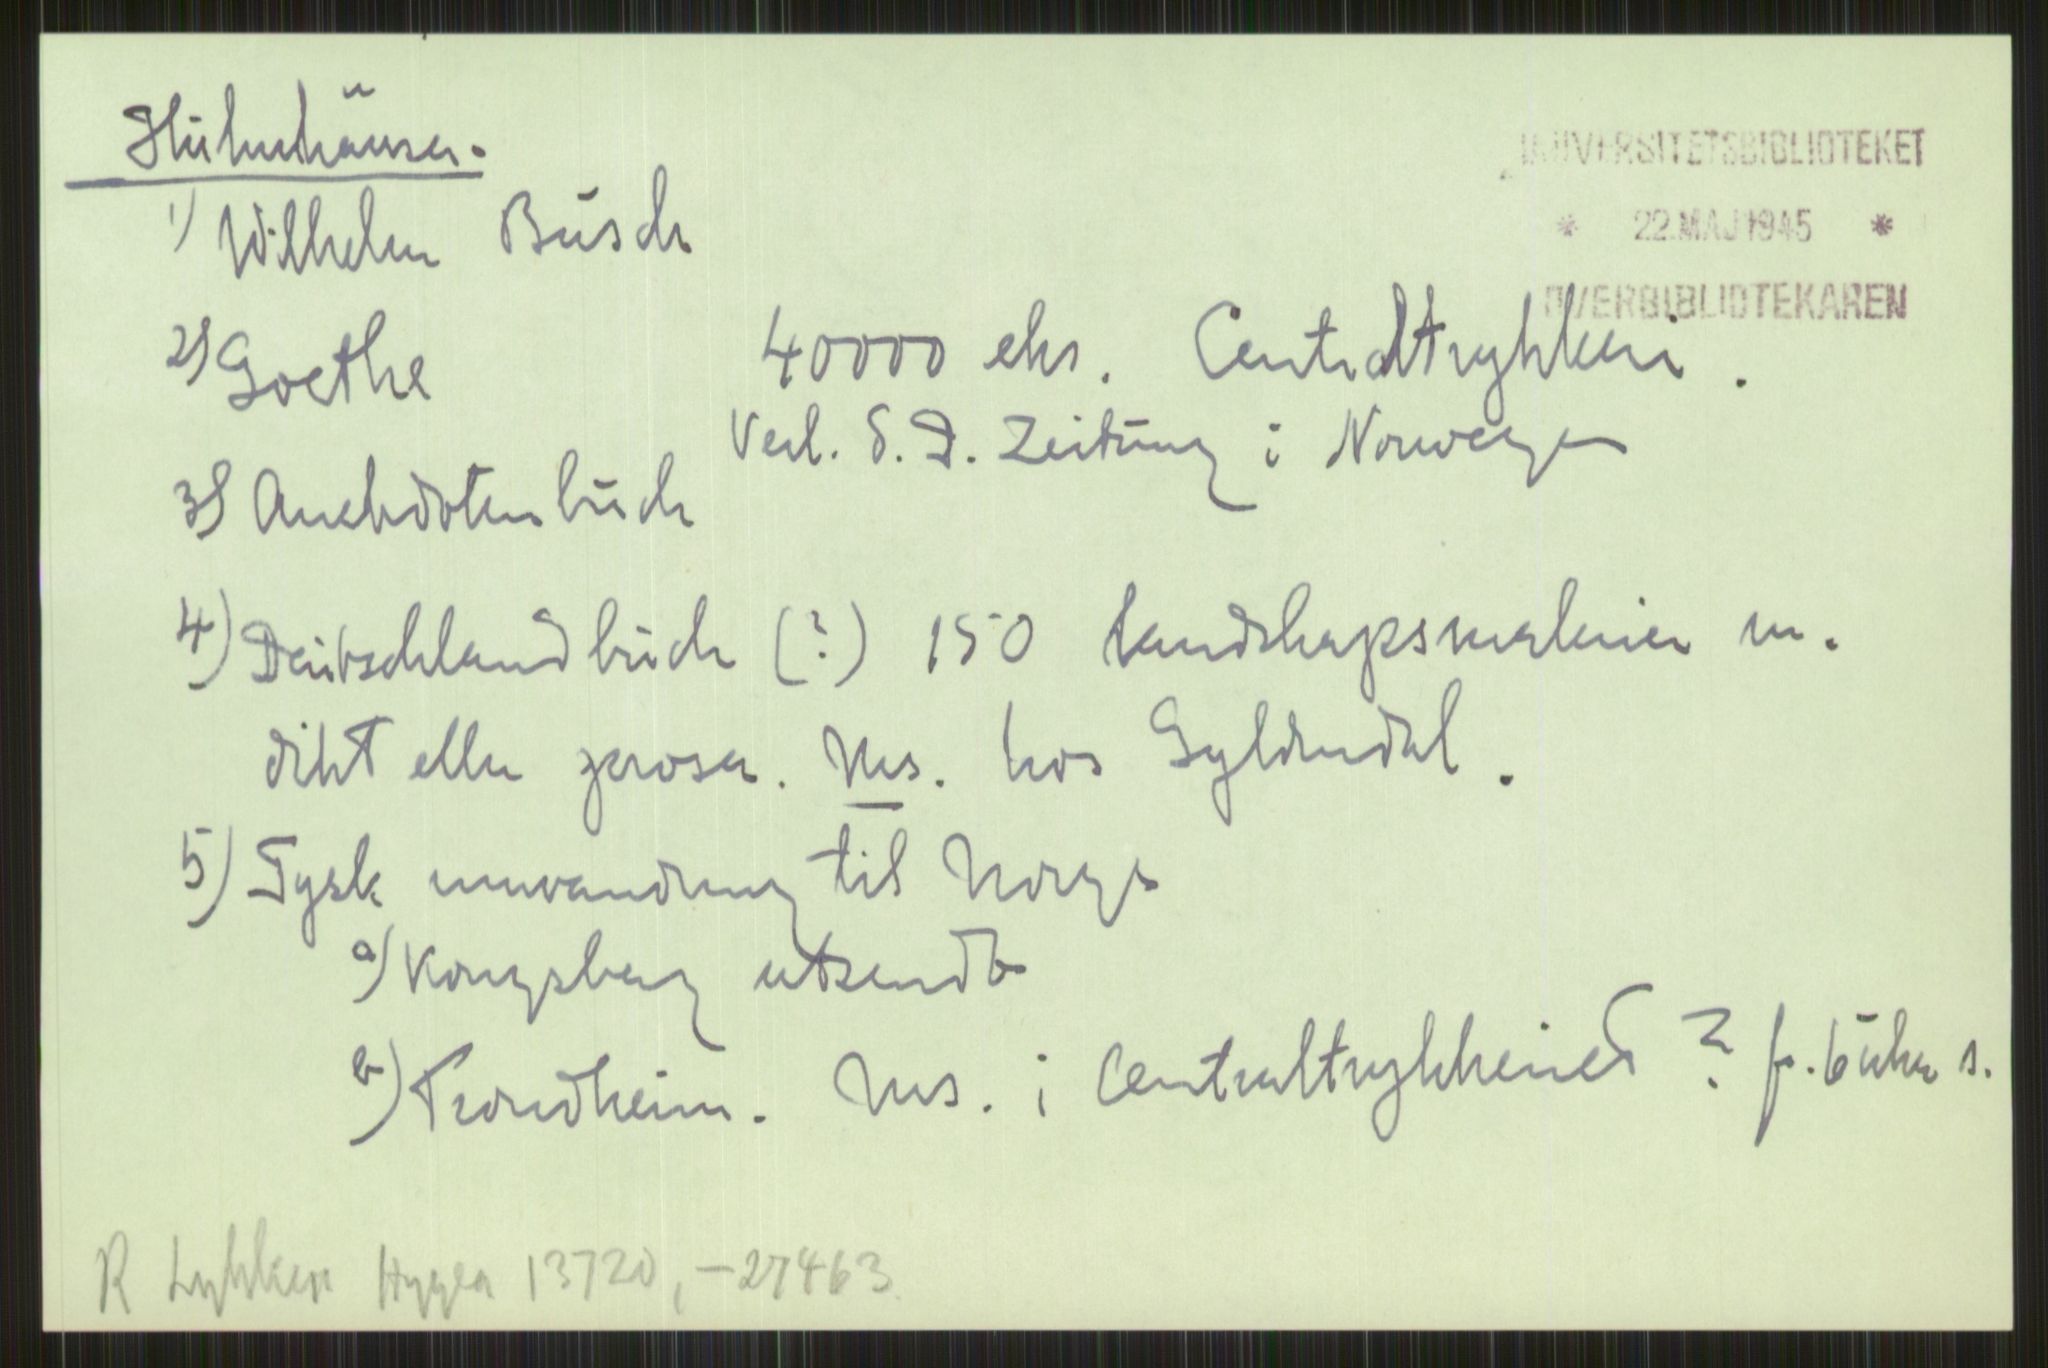 Hühnhäuser.
UNIVERSITETSBIBLIOTEKET
* 22.MAJ 1945 *
OVERBIBLIOTEKAREN
1) Wilhelm Busch
2) Goethe 40000 eks. Centraltrykkeri.
Verl. d. D. Zeitung i Norwegen
3) Anekdotenbuch
4) Deutschlandbuch (?) 150 landskapsmalerier m.
dikt eller prosa. Ms. hos Gyldendal.
5) Tysk innvandring til Norge
a) Kongsberg utsendt
b) Trondheim. Ms. i Centraltrykkeriet? f. 6 uker s.
R Lykken Hygea 13720, -27463